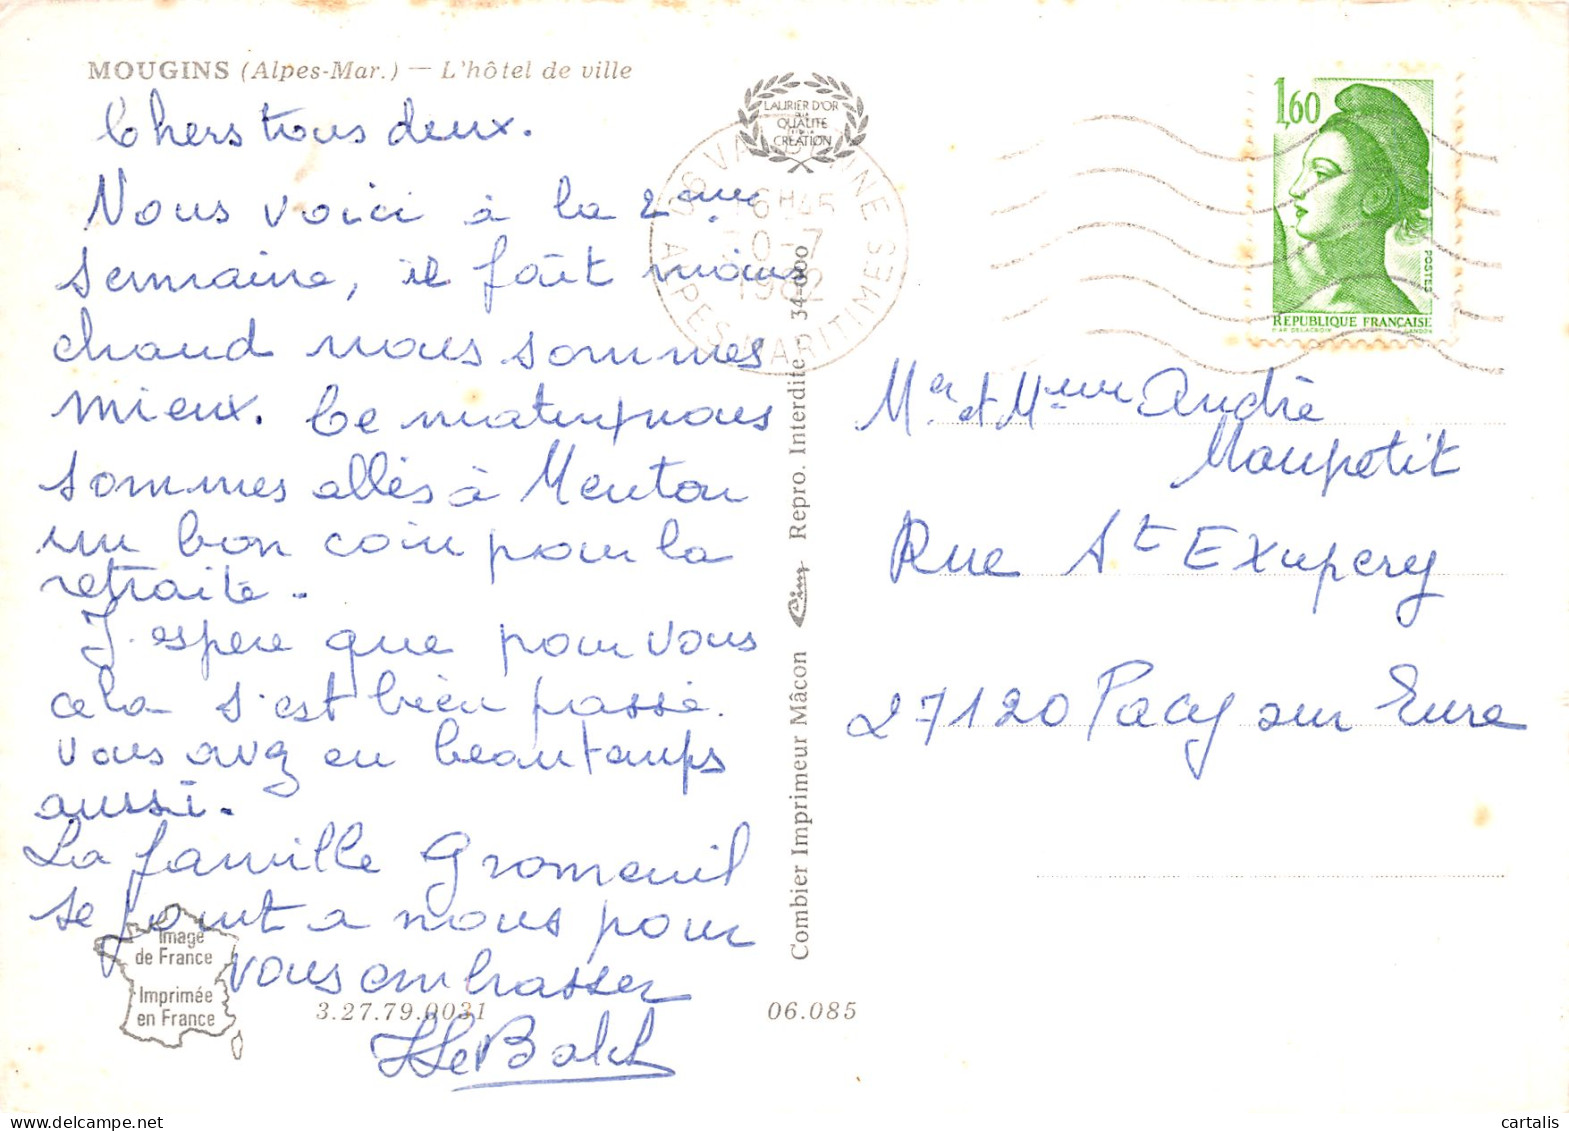 MOUGINS (Alpes-Mar.) — L'hôtel de ville
Chers tous deux.
Nous voici à la 2ème
semaine, il fait moins
chaud nous sommes
mieux. Ce matin nous
sommes allés à Menton
un bon coin pour la
retraite.
J'espère que pour vous
cela s'est bien passé.
vous avez eu beau temps
aussi.
La famille Gromeuil
se joint a nous pour
vous embrasser
Image
de France
Imprimée
en France
3.27.79.0031
06.085
LAURIER D'OR
QUALITÉ
CRÉATION
06 VALBONNE
16H45
1982
ALPES MARITIMES
Combier Imprimeur Mâcon Repro. Interdite 34-000
1,60
POSTES
REPUBLIQUE FRANÇAISE
D'AP. DELACROIX GANDON
Mr et Mme André
Maupetit
Rue St Exupery
27120 Pacy sur Eure
cartalis